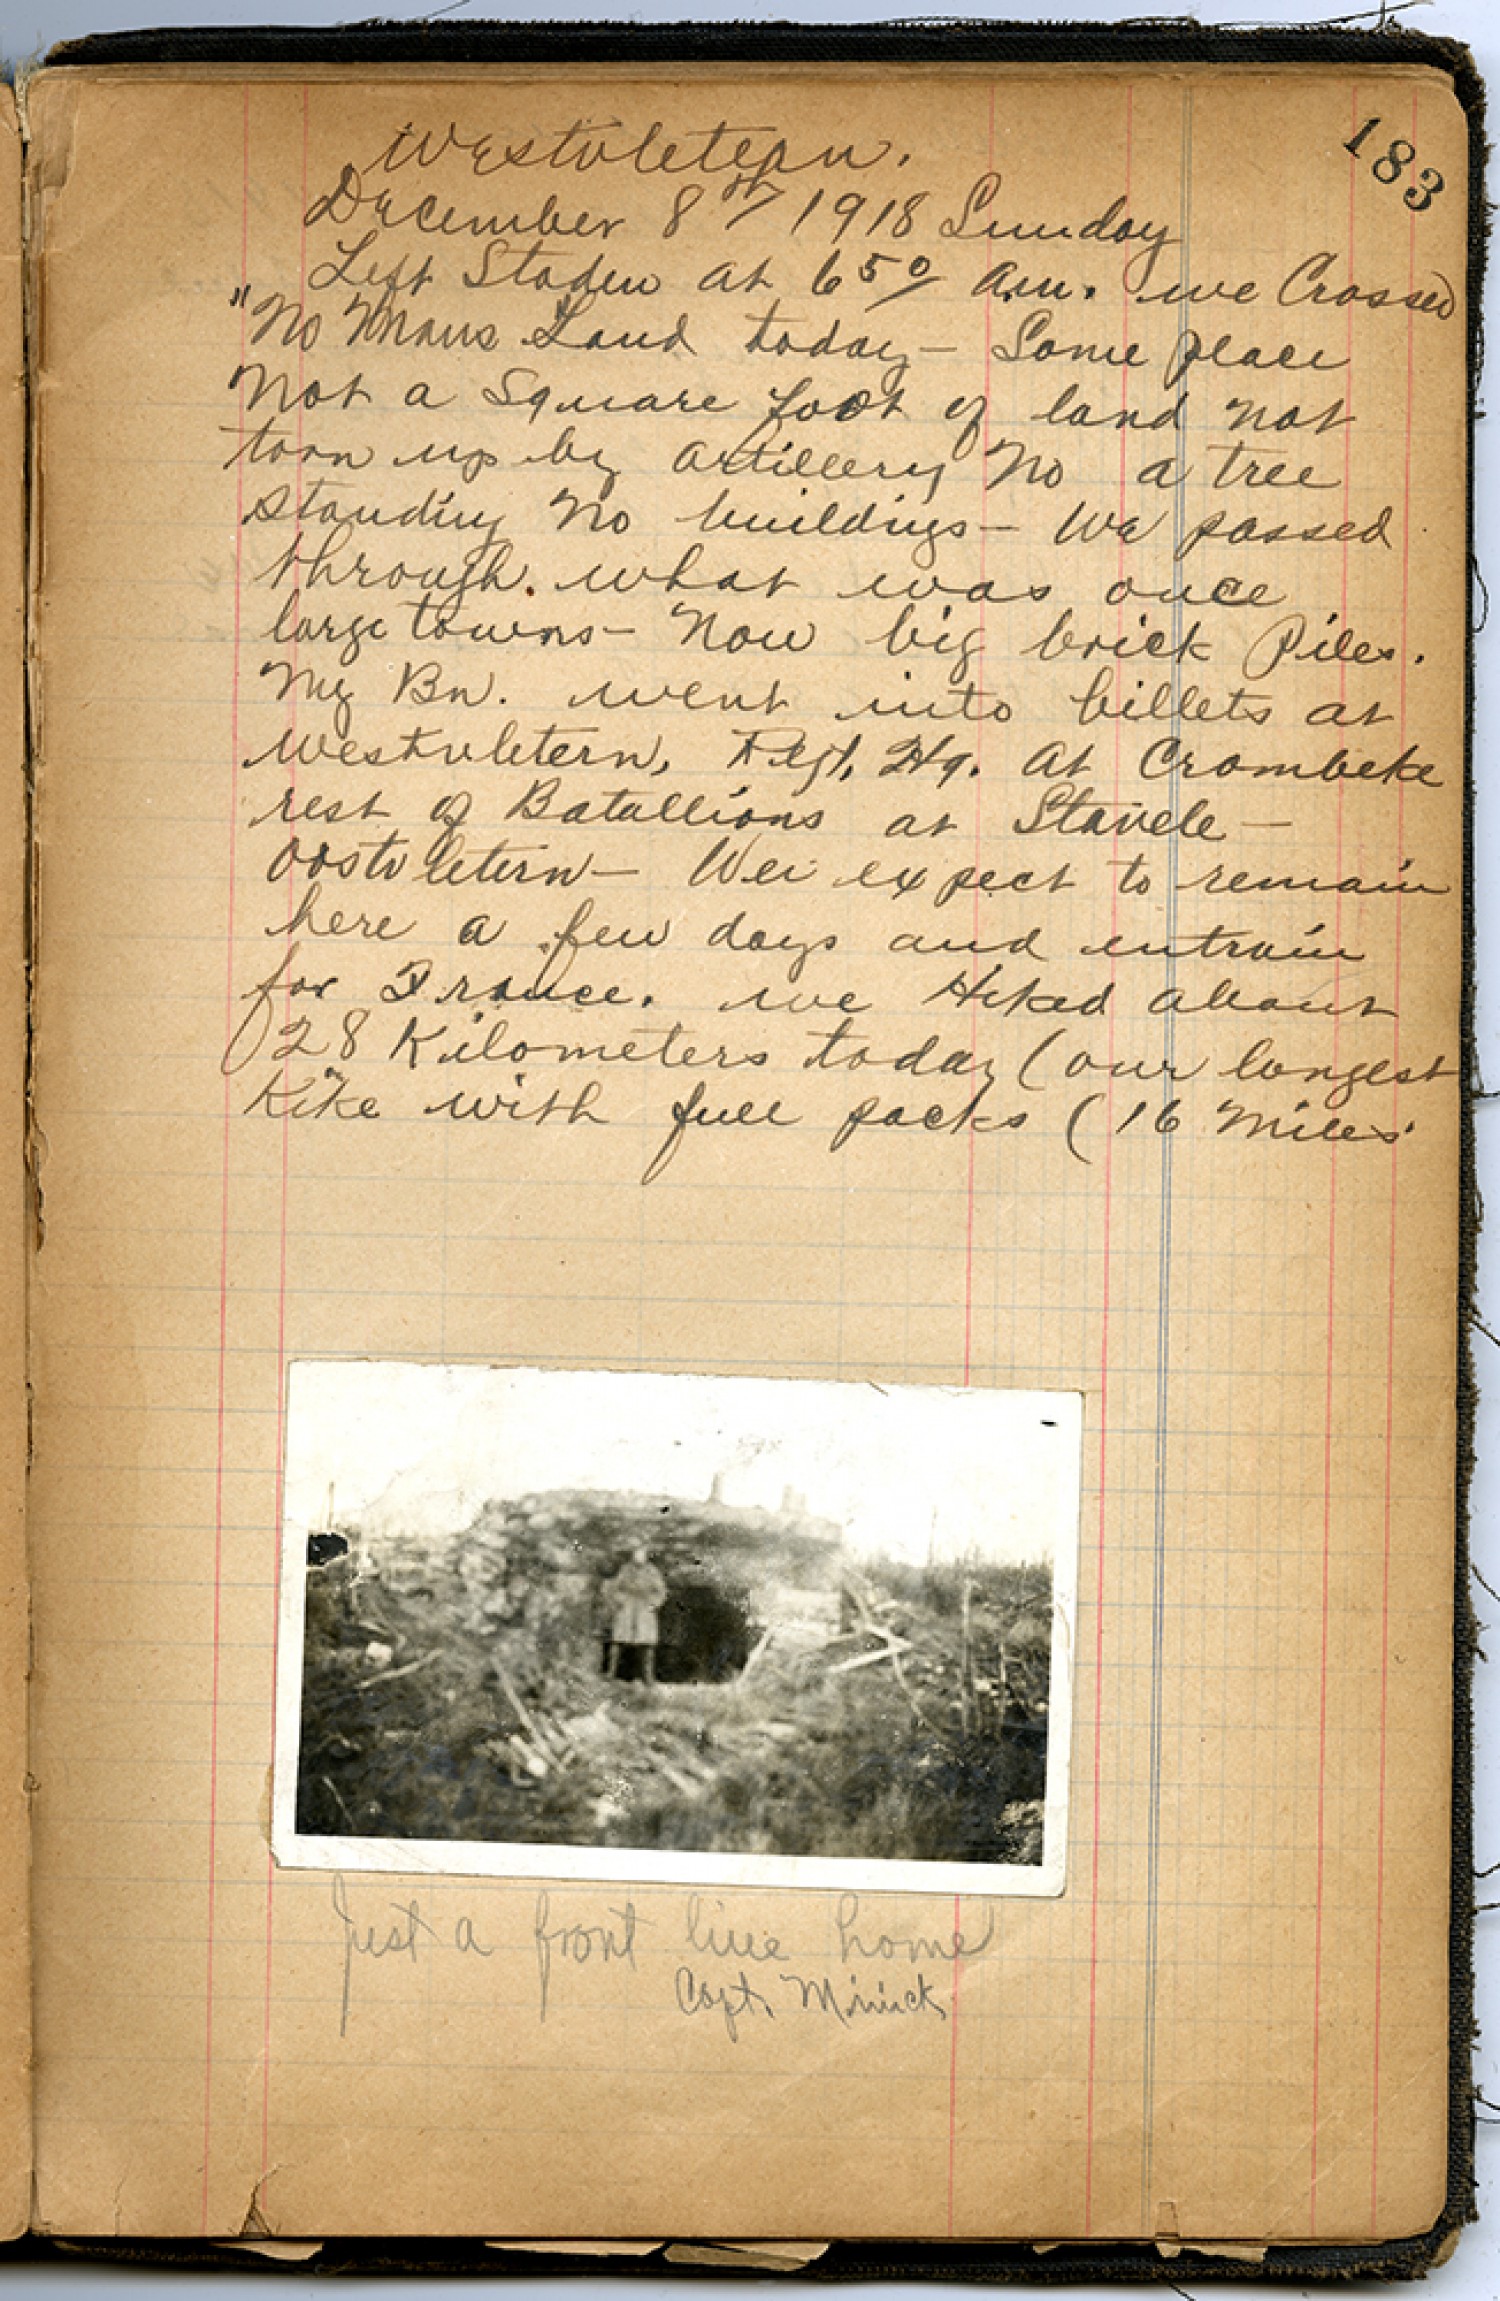 183
Westvletern.
December 8th 1918 Sunday
Left Staden at 6 50 a.m. we Crossed
"No Mans Land today - Some place
Not a square foot of land not
torn up by artillery No a tree
standing No buildings - We passed
through. what was once
large towns - Now big brick Piles.
My Bn. went into billets at
Westvletern, Regt. Hq. at Crombeke
rest of Batallions at Stavele -
Oostvletern - We expect to remain
here a few days and entrain
for France. we Hiked about
28 Kilometers today (our longest
Kike with full packs (16 Miles
Just a front line home
Capt. Minick